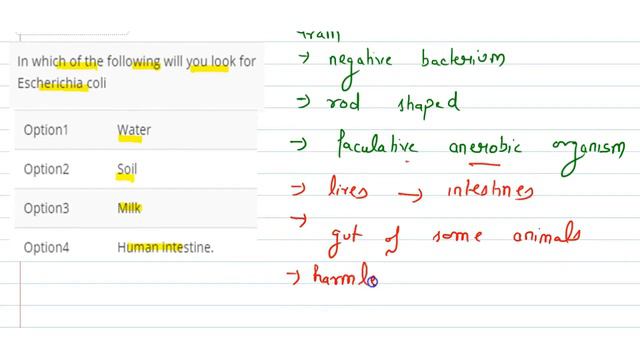 In which of the following will you look for
Escherichia coli
Option1 Water
Option2 Soil
Option3 Milk
Option4 Human intestine.
→ negative bacterium
→ rod shaped
→ faculative anerobic organism
→ lives → intestines
→ gut of some animals
→ harmle